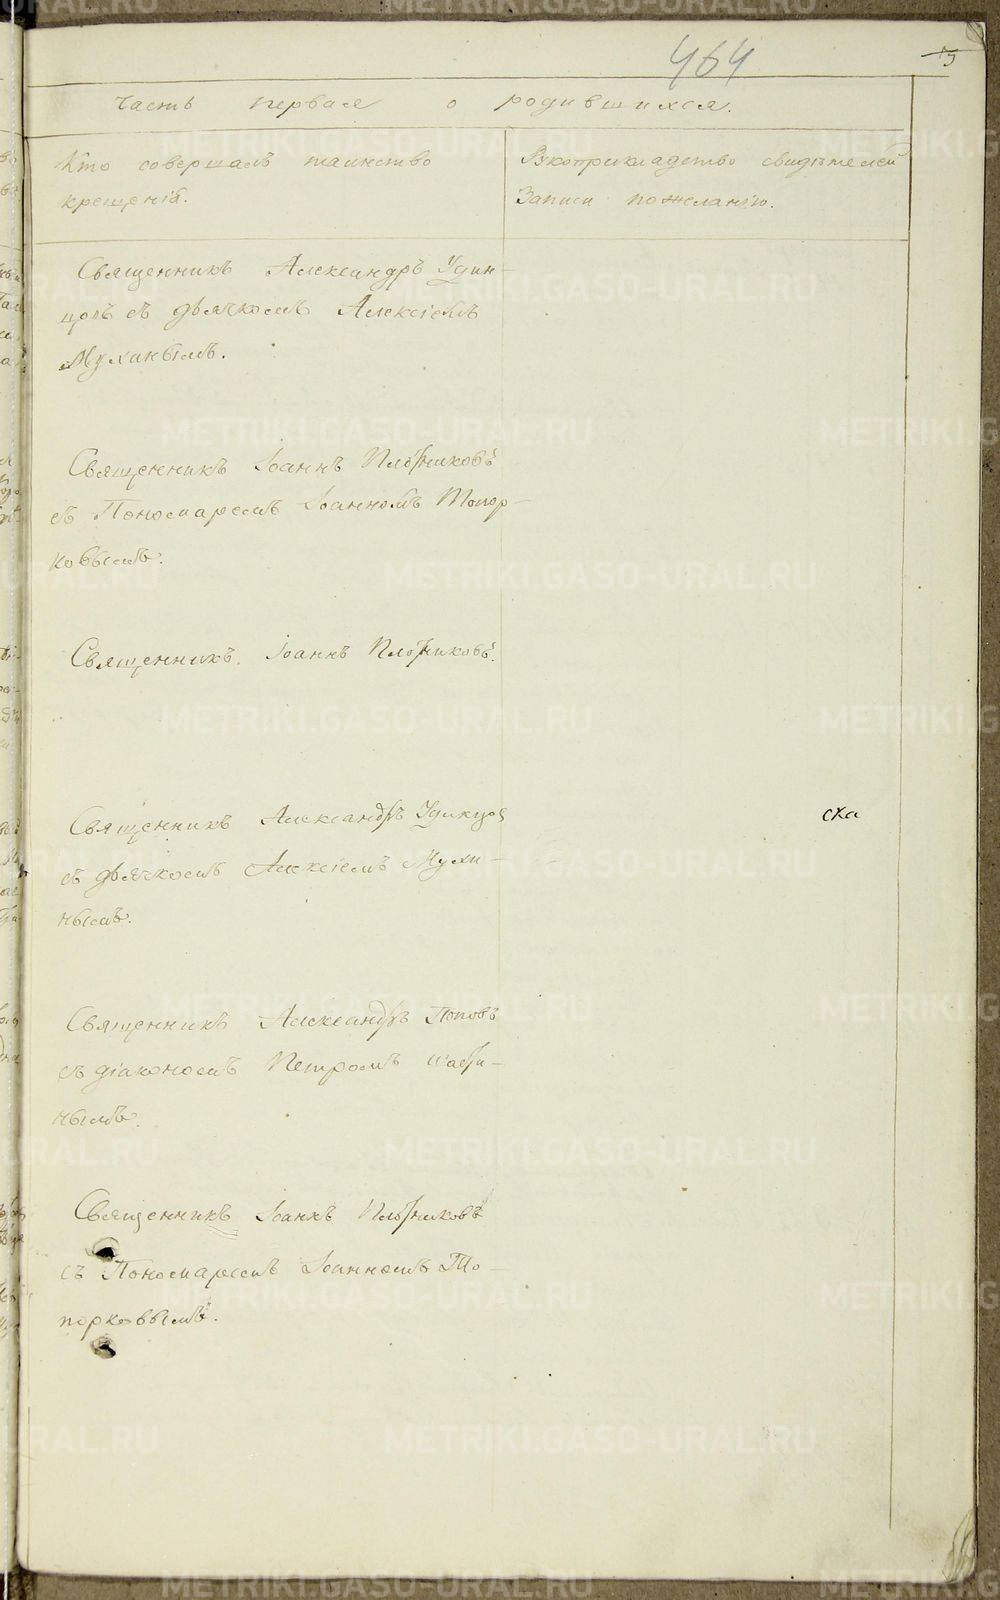 464
Часть первая о родившихся.
Кто совершалъ таинство
крещенія.
Рукоприкладство свидѣтелей
записи по желанію.
Священникъ Александръ Удин-
цовъ съ дьячкомъ Алексіемъ
Мухинымъ.
Священникъ Іоаннъ Плотниковъ
съ Пономаремъ Іоанномъ Топор-
ковымъ.
Священникъ Іоаннъ Плотниковъ.
Священникъ Александръ Удинцов
съ дьячкомъ Алексіемъ Мухи-
нымъ.
ска
Священникъ Александръ Поповъ
съ діакономъ Петромъ
нымъ.
Священникъ Іоаннъ Плотниковъ
съ Пономаремъ Іоанномъ То-
порковымъ.
METRIKI.GASO-URAL.RU